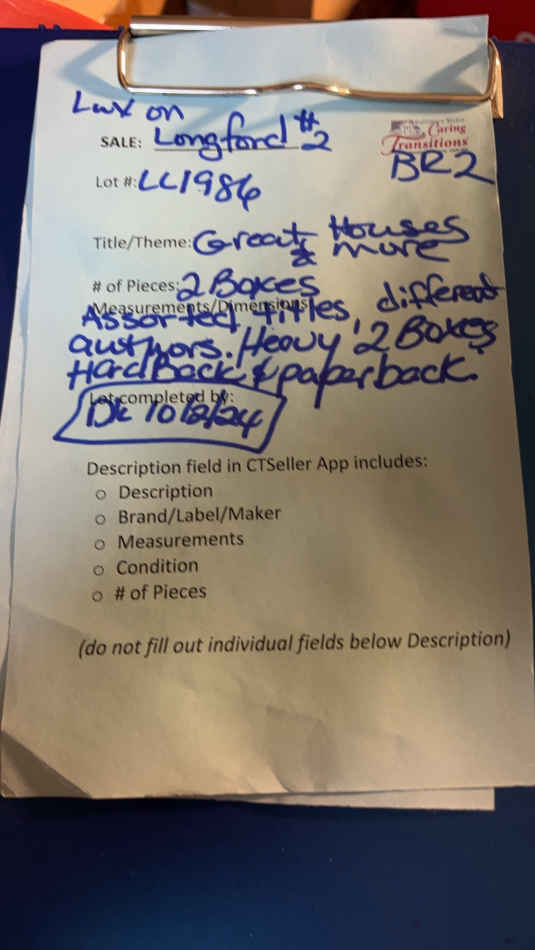 Lux on
SALE: Longford #2
Caring
Transitions
BR2
Lot #: LL1986
Title/Theme: Great Houses
& more
# of Pieces: 2 Boxes
Measurements/Dimensions:
Assorted titles, different
authors. Heavy! 2 Boxes
Hardback & paperback.
Lot completed by:
DK 10/2/24
Description field in CTSeller App includes:
o Description
o Brand/Label/Maker
o Measurements
o Condition
o # of Pieces
(do not fill out individual fields below Description)